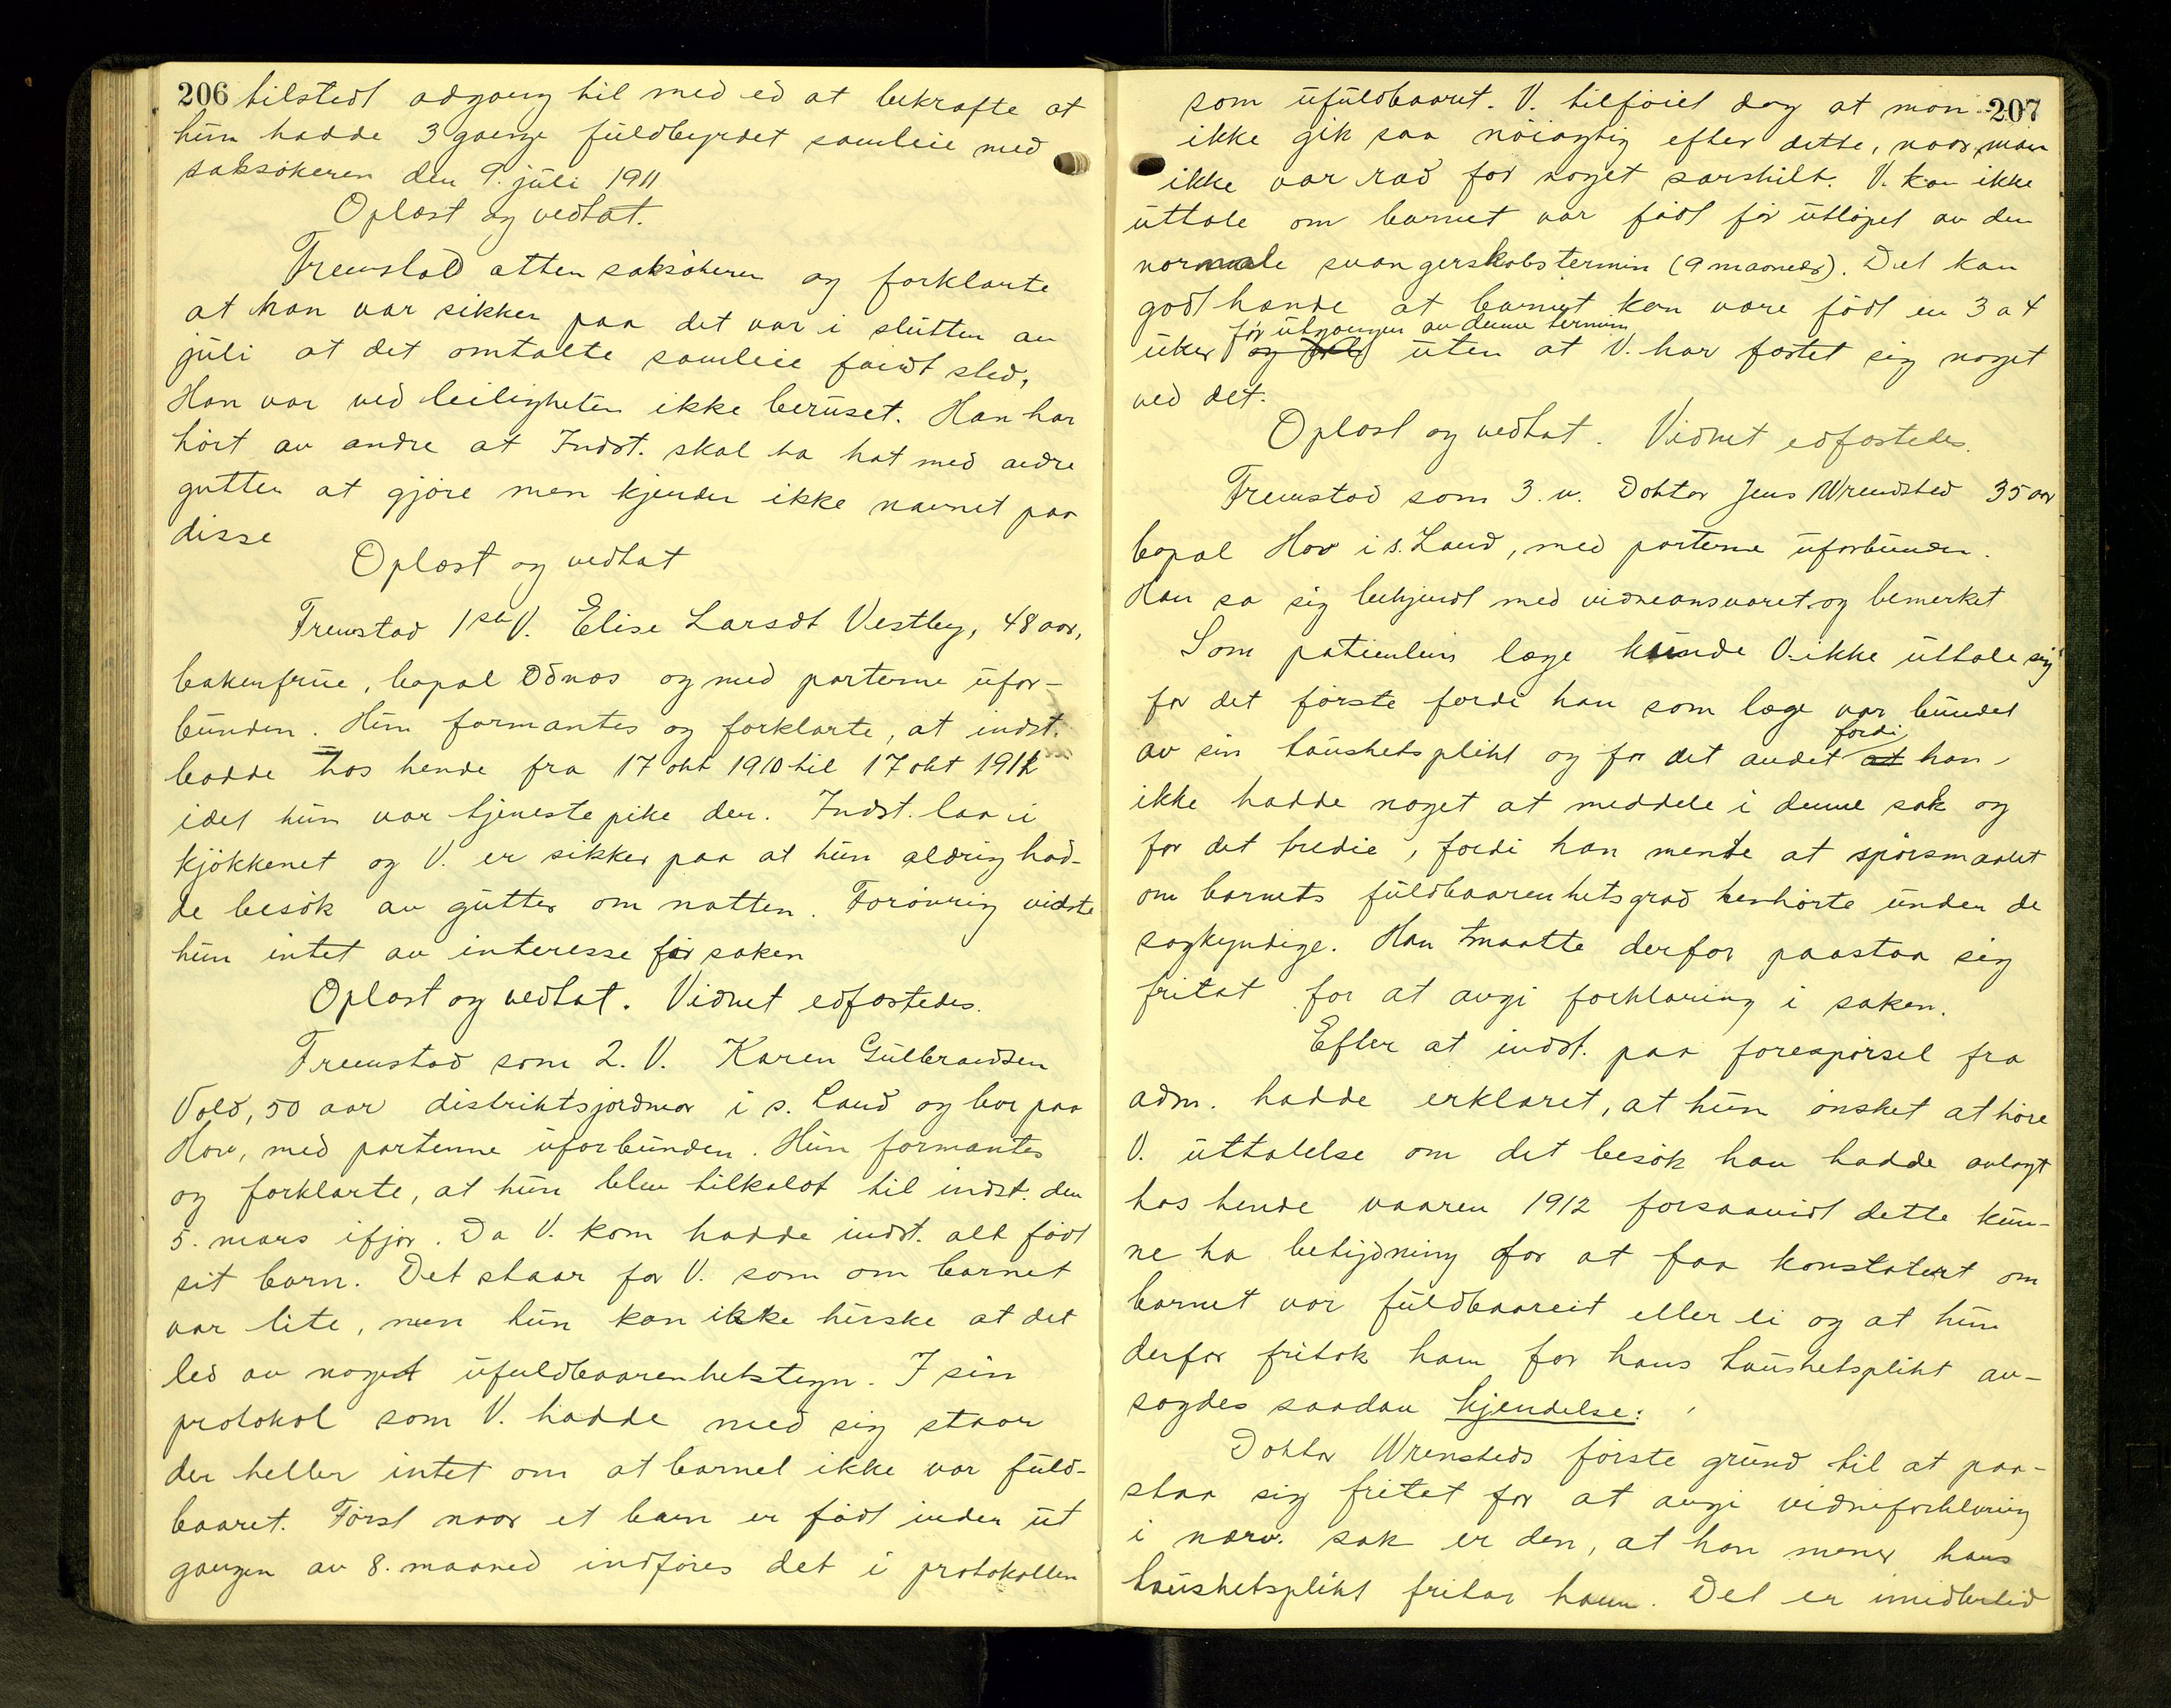 206 tilstedt adgang til med ed at bekræfte at
hun hadde 3 gange fuldbyrdet samleie med
saksøkeren den 9. juli 1911
Oplæst og vedtat.
Fremstod atten saksøkeren og forklarte
at han var sikker paa det var i slutten av
juli at det omtalte samleie fandt sted.
Han var ved leiligheten ikke beruset. Han har
hørt av andre at Indst. skal ha hat med andre
gutter at gjøre men kjender ikke navnet paa
disse
Oplæst og vedtat
Fremstod 1ste V. Elise Larsdt Vestby, 48 aar,
bakerfrue, bopæl Odnæs og med parterne ufor-
bunden. Hun formantes og forklarte, at indst.
bodde hos hende fra 17 okt 1910 til 17 okt 1911
idet hun var tjenestepike der. Indst. laa i
kjøkkenet og V. er sikker paa at hun aldrig had-
de besøk av gutter om natten. Forøvrig vidste
hun intet av interesse for saken
Oplæst og vedtat. Vidnet edfæstedes.
Fremstod som 2. V. Karen Gulbrandsen
Vold, 50 aar distriktsjordmor i s. Land og bor paa
Hov, med parterne uforbunden. Hun formantes
og forklarte, at hun blev tilkaldt til indst. den
5. mars ifjor. Da V. kom hadde indst. alt født
sit barn. Det staar for V. som om barnet
var lite, men hun kan ikke huske at det
led av noget ufuldbaarenhetstegn. I sin
protokol som V. hadde med sig staar
der heller intet om at barnet ikke var fuld-
baaret. Først naar et barn er født inden ut
gangen av 8. maaned indføres det i protokollen
som ufuldbaaret. V. tilføiet dog at man 207
ikke gik saa nøiagtig efter dette, naar man
ikke var ræd for noget særskilt. V. kan ikke
uttale om barnet var født før utløpet av den
normale svangerskabstermin (9 maaneder). Det kan
godt hænde at barnet kan være født en 3 a 4
før utgangen av denne termin
uker og uten at V. har fæstet sig noget
ved det.
Oplæst og vedtat. Vidnet edfæstedes.
Fremstod som 3. v. Doktor Jens Wrendsted 35 aar
bopæl Hov i s. Land, med parterne uforbunden.
Han sa sig bekjendt med vidneansvaret og bemerket
Som patientens læge kunde V. ikke uttale sig
for det første fordi han som læge var bundet
av sin taushetsplikt og for det andet at fordi han
ikke hadde noget at meddele i denne sak og
for det tredie, fordi han mente at spørsmaalet
om barnets fuldbaarenhetsgrad henhørte under de
sagkyndige. Han maatte derfor paastaa sig
fritat for at avgi forklaring i saken.
Efter at indst. paa forespørsel fra
adm. hadde erklæret, at hun ønsket at høre
V. uttalelse om det besøk han hadde avlagt
hos hende vaaren 1912 forsaavidt dette kun-
ne ha betydning for at faa konstatert om
barnet var fuldbaareit eller ei og at hun
derfor fritok ham for hans taushetsplikt av-
sagdes saadan kjendelse:
Doktor Wrensteds første grund til at paa-
staa sig fritat for at avgi vidneforklaring
i nærv. sak er den, at han mener hans
taushetsplikt fritar ham. Det er imidlertid